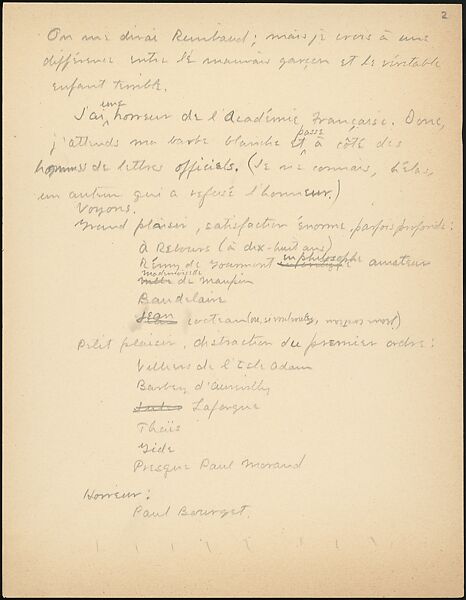 2
On me dirai Rimbaud; mais je crois à une
différence entre le mauvais garçon et le véritable
enfant terrible.
J'ai une horreur de l'Académie Française. Donc,
j'attends ma barbe blanche et passe à côté des
hommes de lettres officiels. (Je ne connais, hélas,
un auteur qui a refusé l'honneur.)
Voyons.
Grand plaisir, satisfaction énorme, parfois profonde:
À Rebours (à dix-huit ans)
Rémy de Gourmont un philosophe amateur
Mademoiselle de Maupin
Baudelaire
Jean Cocteau
Petit plaisir, distraction du premier ordre:
Villiers de l'Isle Adam
Barbey d'Aurevilly
Jules Laforgue
Thaïs
Gide
Presque Paul Morand
Horreur:
Paul Bourget.